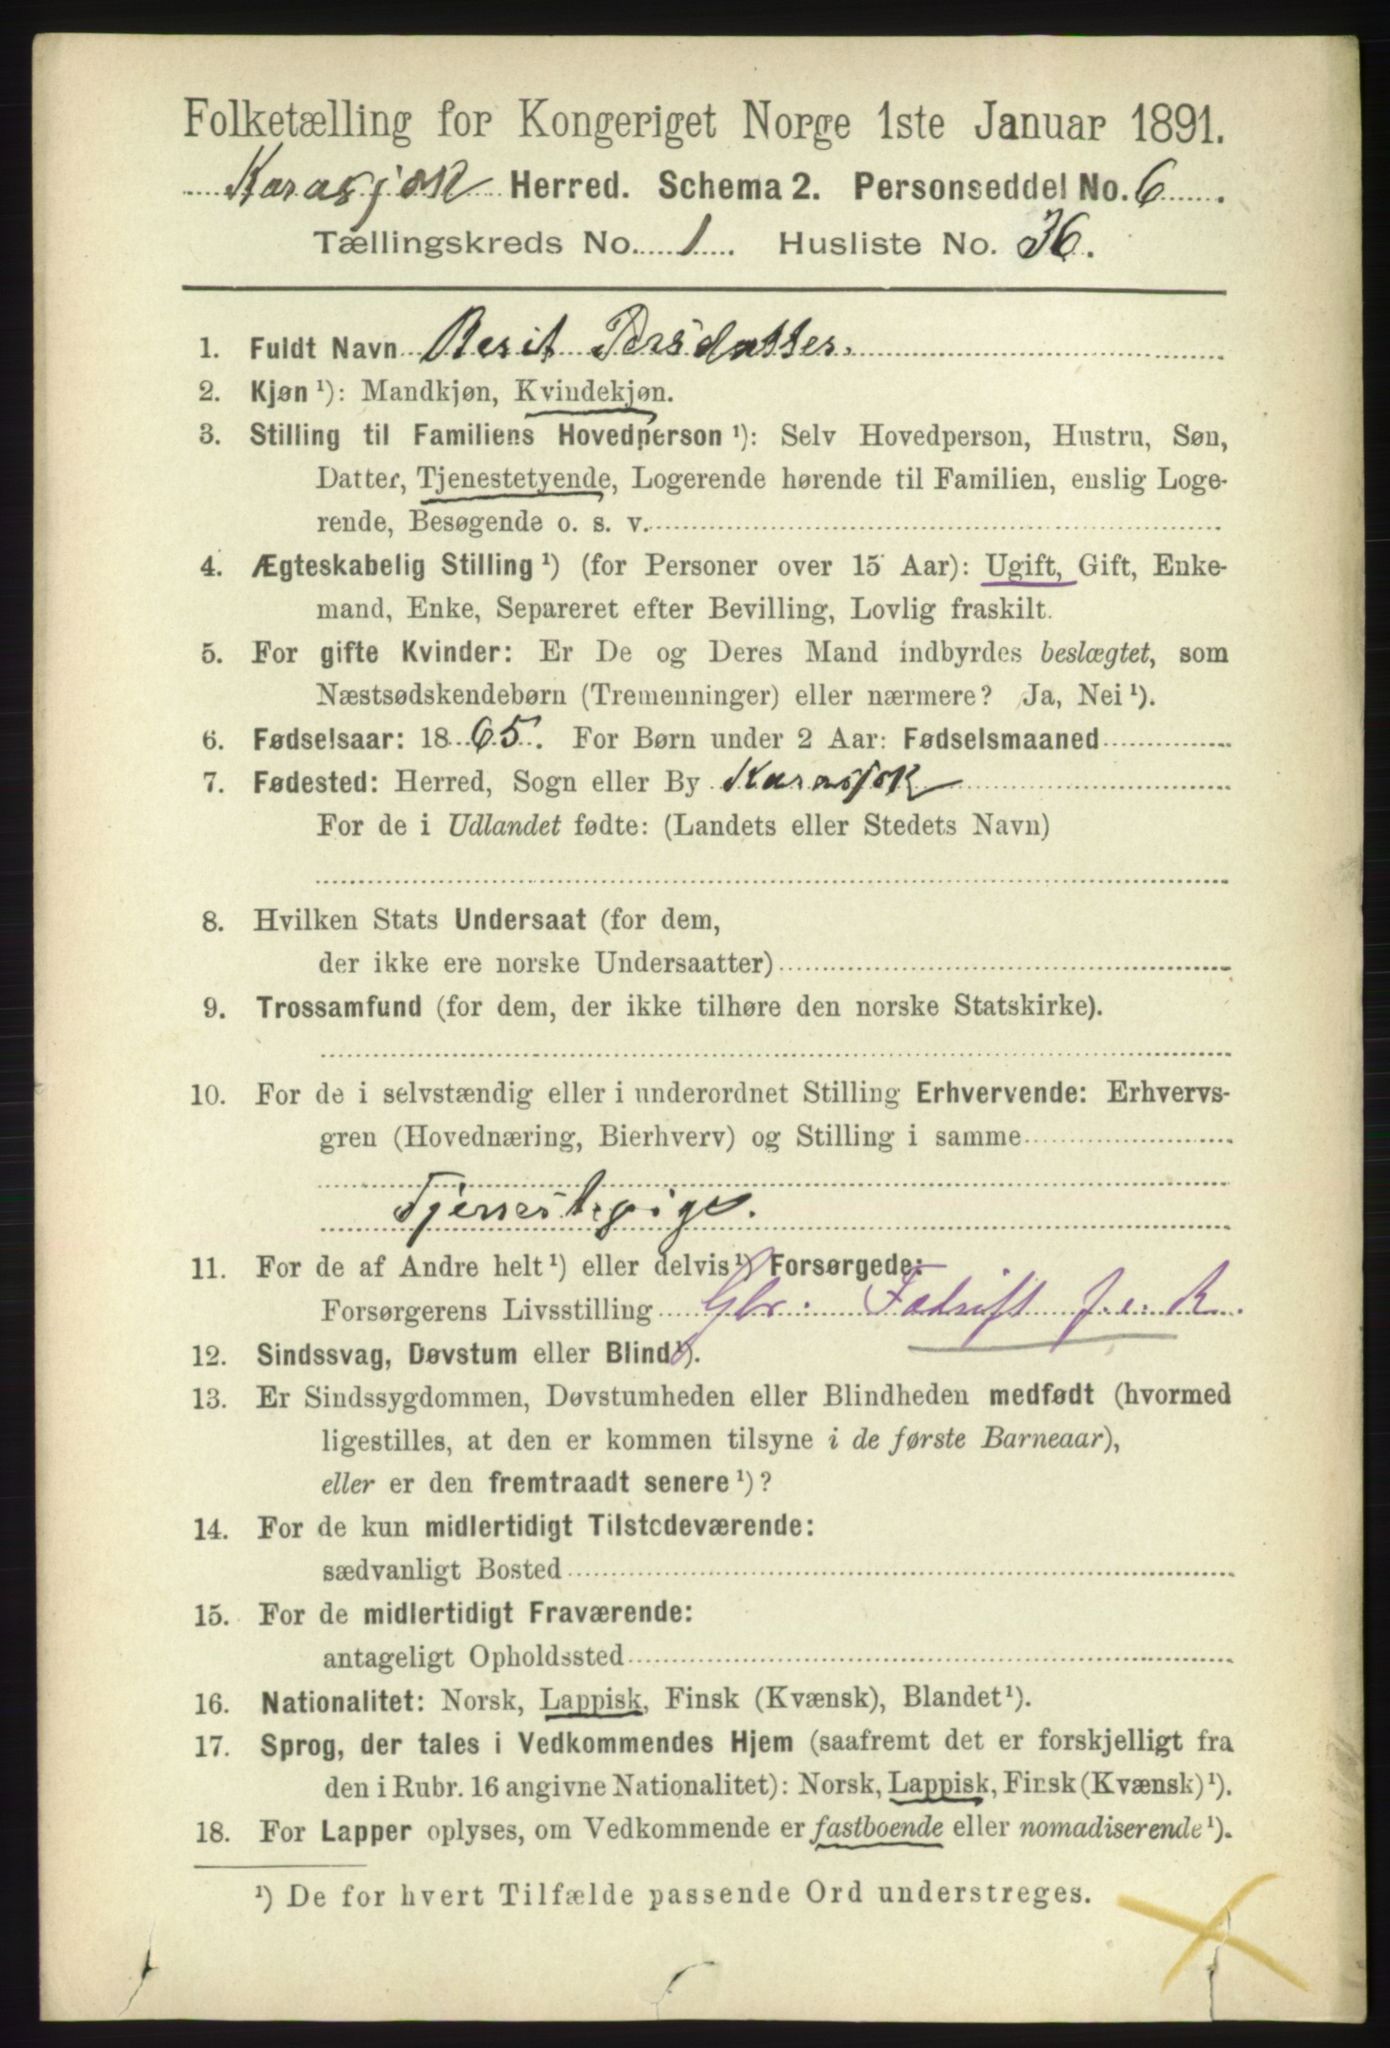 Folketælling for Kongeriget Norge 1ste Januar 1891.
Karasjok Herred. Schema 2. Personseddel No. 6.
Tællingskreds No. 1. Husliste No. 36.
1. Fuldt Navn Berit Persdatter.
2. Kjøn ¹): Mandkjøn, Kvindekjøn.
3. Stilling til Familiens Hovedperson ¹): Selv Hovedperson, Hustru, Søn,
Datter, Tjenestetyende, Logerende hørende til Familien, enslig Loge-
rende, Besøgende o. s. v.
4. Ægteskabelig Stilling ¹) (for Personer over 15 Aar): Ugift, Gift, Enke-
mand, Enke, Separeret efter Bevilling, Lovlig fraskilt.
5. For gifte Kvinder: Er De og Deres Mand indbyrdes beslægtet, som
Næstsødskendebørn (Tremenninger) eller nærmere? Ja, Nei ¹).
6. Fødselsaar: 1865. For Børn under 2 Aar: Fødselsmaaned
7. Fødested: Herred, Sogn eller By Karasjok
For de i Udlandet fødte: (Landets eller Stedets Navn)
8. Hvilken Stats Undersaat (for dem,
der ikke ere norske Undersaatter)
9. Trossamfund (for dem, der ikke tilhøre den norske Statskirke).
10. For de i selvstændig eller i underordnet Stilling Erhvervende: Erhvervs-
gren (Hovednæring, Bierhverv) og Stilling i samme
Tjenestepige.
11. For de af Andre helt ¹) eller delvis ¹) Forsørgede:
Forsørgerens Livsstilling Gbr. Fædrift f. e. R.
12. Sindssvag, Døvstum eller Blind ¹).
13. Er Sindssygdommen, Døvstumheden eller Blindheden medfødt (hvormed
ligestilles, at den er kommen tilsyne i de første Barneaar),
eller er den fremtraadt senere ¹)?
14. For de kun midlertidigt Tilstedeværende:
sædvanligt Bosted
15. For de midlertidigt Fraværende:
antageligt Opholdssted
16. Nationalitet: Norsk, Lappisk, Finsk (Kvænsk), Blandet ¹).
17. Sprog, der tales i Vedkommendes Hjem (saafremt det er forskjelligt fra
den i Rubr. 16 angivne Nationalitet): Norsk, Lappisk, Finsk (Kvænsk) ¹).
18. For Lapper oplyses, om Vedkommende er fastboende eller nomadiserende ¹).
¹) De for hvert Tilfælde passende Ord understreges.